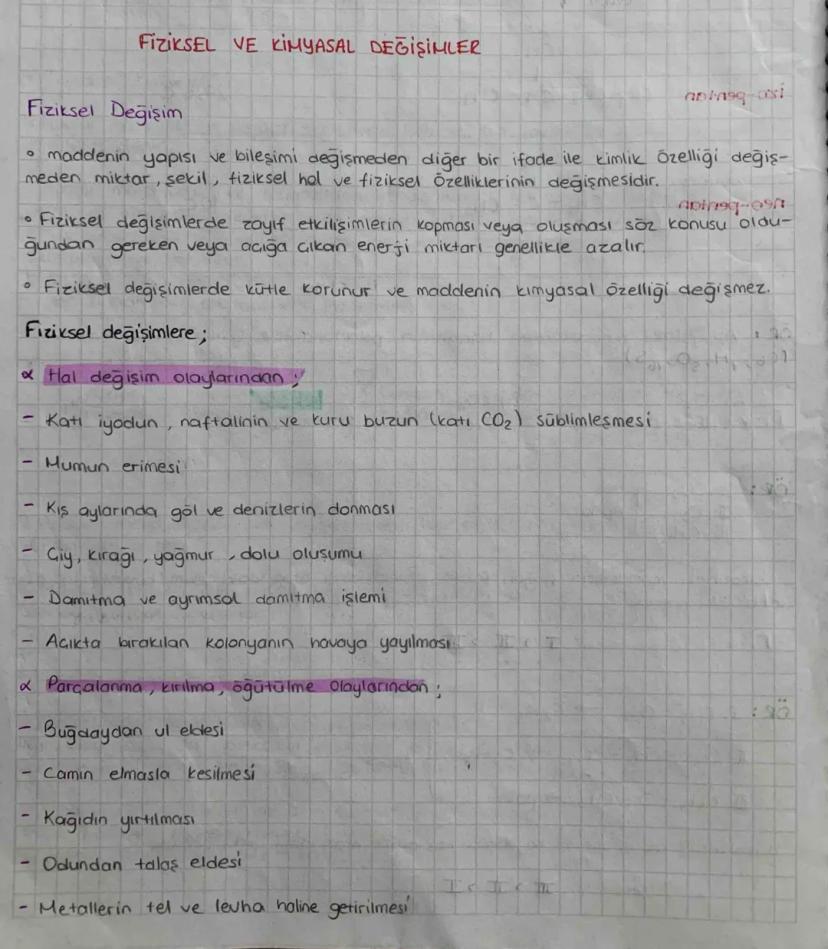 FİZİKSEL VE KİMYASAL DEĞİŞİMLER
Fiziksel Değişim
° maddenin yapısı ve bileşimi değişmeden diğer bir ifade ile kimlik özelliği değiş-
meden miktar, şekil, fiziksel hal ve fiziksel özelliklerinin değişmesidir.
° Fiziksel değişimlerde zayıf etkilişimlerin kopması veya oluşması söz konusu oldu-
ğundan gereken veya açığa çıkan enerji miktarı genellikle azalır.
° Fiziksel değişimlerde kütle korunur ve maddenin kimyasal özelliği değişmez.
Fiziksel değişimlere;
α Hal değişim olaylarından;
- Katı iyodun, naftalinin ve kuru buzun (katı CO₂) süblimleşmesi
- Mumun erimesi
- Kış aylarında göl ve denizlerin donması
- Çiy, kırağı, yağmur, dolu oluşumu
- Damıtma ve ayrımsal damıtma işlemi
- Açıkta bırakılan kolonyanın havaya yayılması
α Parçalanma, kırılma, öğütülme olaylarından;
- Buğdaydan ul eldesi
- Camın elmasla kesilmesi
- Kağıdın yırtılması
- Odundan talaş eldesi
- Metallerin tel ve levha haline getirilmesi